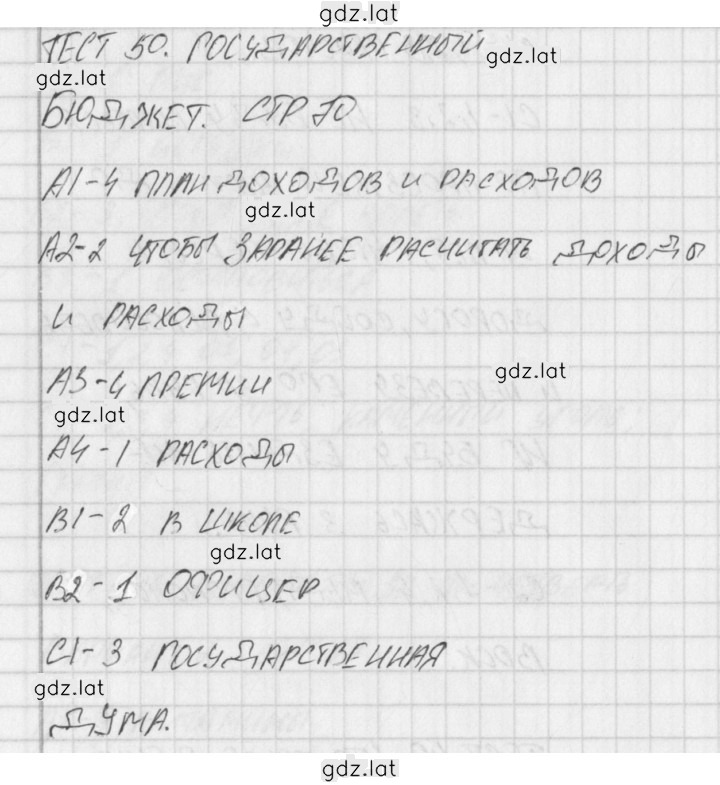 gdz.lat
ТЕСТ 50. ГОСУДАРСТВЕННЫЙ
gdz.lat
gdz.lat
БЮДЖЕТ. СТР 70
А1-4 ПЛАН ДОХОДОВ И РАСХОДОВ
gdz.lat
А2-2 ЧТОБЫ ЗАРАНЕЕ РАСЧИТАТЬ ДОХОДЫ
И РАСХОДЫ
gdz.lat
А3-4 ПРЕМИИ
gdz.lat
А4-1 РАСХОДЫ
В1-2 В ШКОЛЕ
gdz.lat
В2-1 ОФИЦЕР
С1-3 ГОСУДАРСТВЕННАЯ
gdz.lat
ДУМА.
gdz.lat